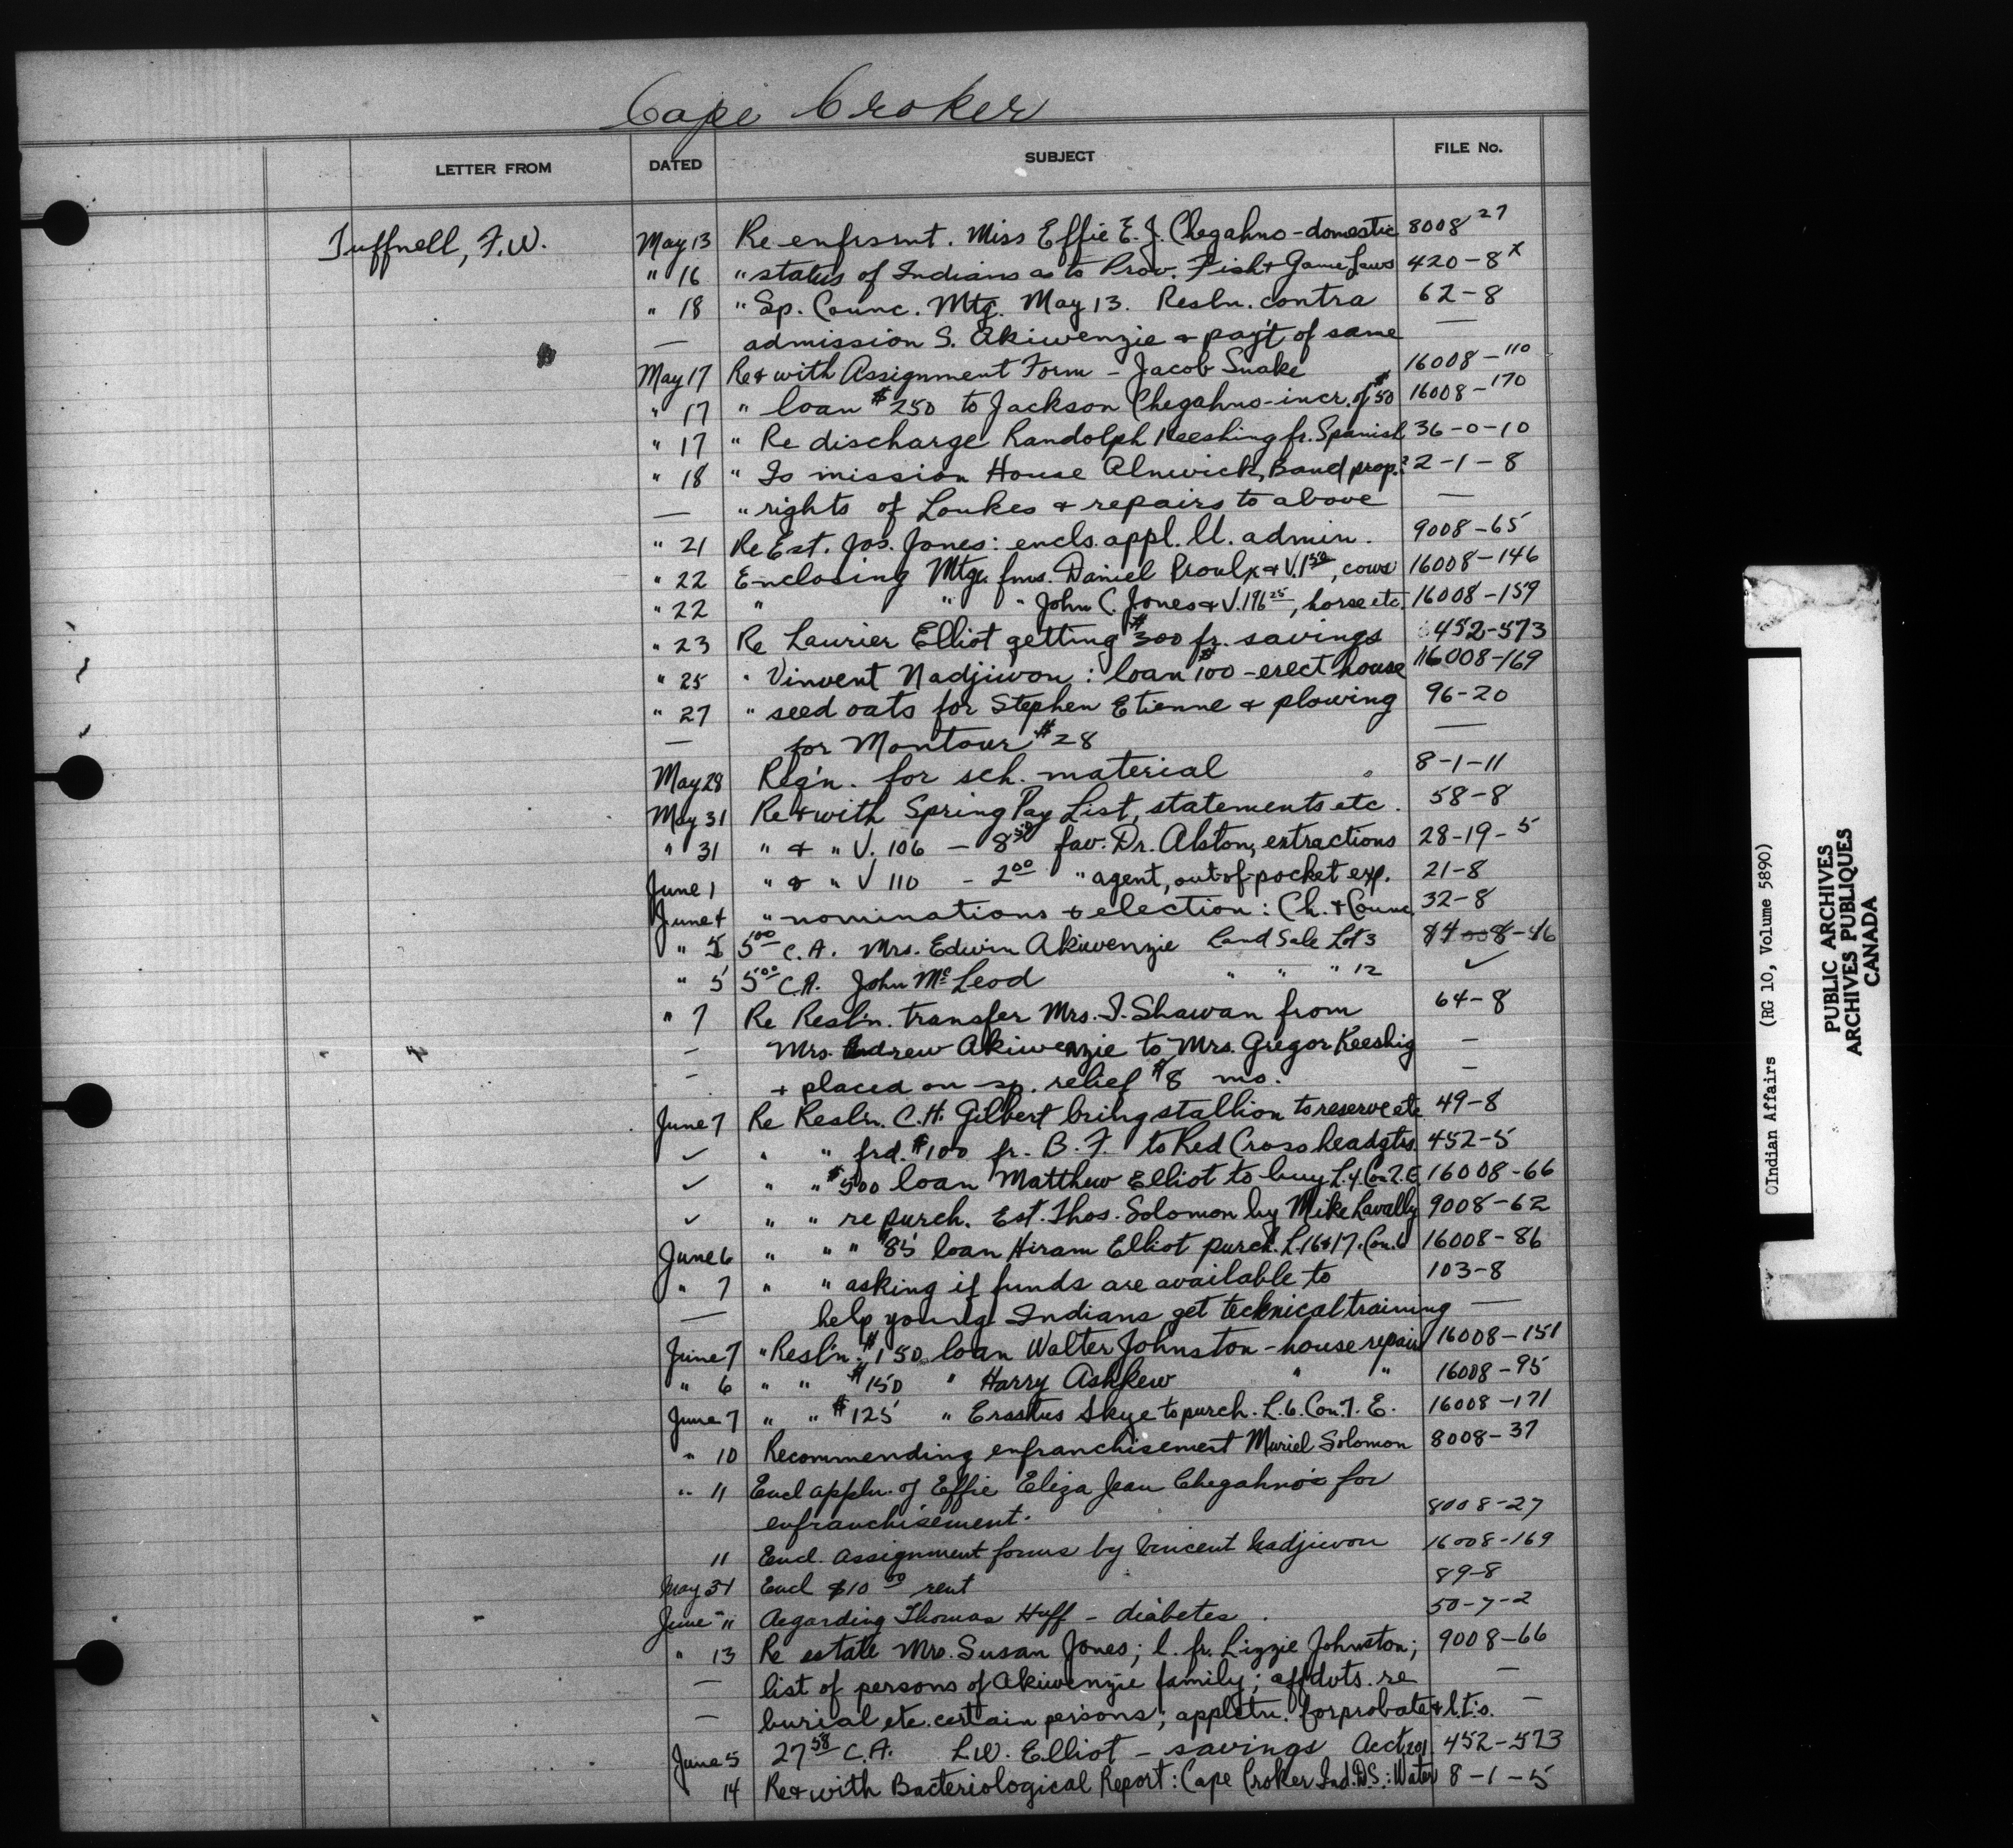 Cape Croker
LETTER FROM DATED SUBJECT FILE No.
Tuffnell, F.W. May 13 Re enfrsmt. Miss Effie E. J. Chegahno - domestic 8008 27
" 16 " status of Indians as to Prov. Fish & Game Laws 420-8 x
" 18 " Sp. Counc. Mtg. May 13. Resln. contra 62-8
— admission S. Akiwenzie & pay't of same —
May 17 Re & with Assignment Form - Jacob Snake 16008-110
" 17 " loan $250 to Jackson Chegahno - incr. of $50 16008-170
" 17 " Re discharge Randolph Keeshing fr. Spanish 36-0-10
" 18 " Is mission House Alnwick, Band prop.? 2-1-8
— " rights of Loukes & repairs to above —
" 21 Re Est. Jos. Jones: encls. appl. ll. admin. 9008-65
" 22 Enclosing Mtge. fms. Daniel Proulx & V.1 50, cows 16008-146
" 22 " " " John C. Jones & V.196 25, horse etc. 16008-159
" 23 Re Laurier Elliot getting $300 fr. savings 452-573
" 25 " Vinvent Nadjiwon: loan $100 - erect house 16008-169
" 27 " seed oats for Stephen Etienne & plowing 96-20
— for Montour $28 —
May 28 Req'n. for sch. material 8-1-11
May 31 Re & with Spring Pay List, statements etc. 58-8
" 31 " & " V. 106 - 8 50 fav. Dr. Alston, extractions 28-19-5
June 1 " & " V 110 - 2 00 " agent, out-of-pocket exp. 21-8
June 4 " nominations & election: Ch. & Counc. 32-8
" 5 5 00 C.A. Mrs. Edwin Akiwenzie Land Sale Lot 3 84008-46
" 5 5 00 C.A. John McLeod " " " 12 ✓
" 7 Re Resl'n. transfer Mrs. I. Shawan from 64-8
— Mrs. Andrew Akiwenzie to Mrs. Gregor Keeshig —
— & placed on sp. relief $8 mo. —
June 7 Re Resl'n. C.H. Gilbert bring stallion to reserve etc 49-8
✓ " " frd. $100 fr. B. F. to Red Cross headqtrs. 452-5
✓ " " $500 loan Matthew Elliot to buy L.4. Con.7.E. 16008-66
✓ " " re purch. Est. Thos. Solomon by Mike Lavally 9008-62
June 6 " " " $85 loan Hiram Elliot purch. L.16&17. Con.6 16008-86
" 7 " " asking if funds are available to 103-8
— help young Indians get technical training —
June 7 " Resl'n. $150 loan Walter Johnston - house repairs 16008-151
" 6 " " $150 " Harry Ashkew " " 16008-95
June 7 " " $125 " Erastus Skye to purch. L.6. Con.7. E. 16008-171
" 10 Recommending enfranchisement Muriel Solomon 8008-37
" 11 Encl appln. of Effie Eliza Jean Chegahno's for
enfranchisement. 8008-27
11 Encl. assignment forms by Vincent Nadjiwon 16008-169
May 31 Encl $10 00 rent 89-8
June 11 Regarding Thomas Huff - diabetes. 50-7-2
" 13 Re estate Mrs. Susan Jones; l. fr. Lizzie Johnston; 9008-66
— list of persons of Akiwenzie family; affdvts. re —
— burial etc. certain persons; appletn. for probate & l.t's. —
June 5 27 58 C.A. L.W. Elliot - savings Acct. 201 452-573
14 Re & with Bacteriological Report: Cape Croker Ind. D.S.: Water 8-1-15
©Indian Affairs (RG 10, Volume 5890)
PUBLIC ARCHIVES
ARCHIVES PUBLIQUES
CANADA